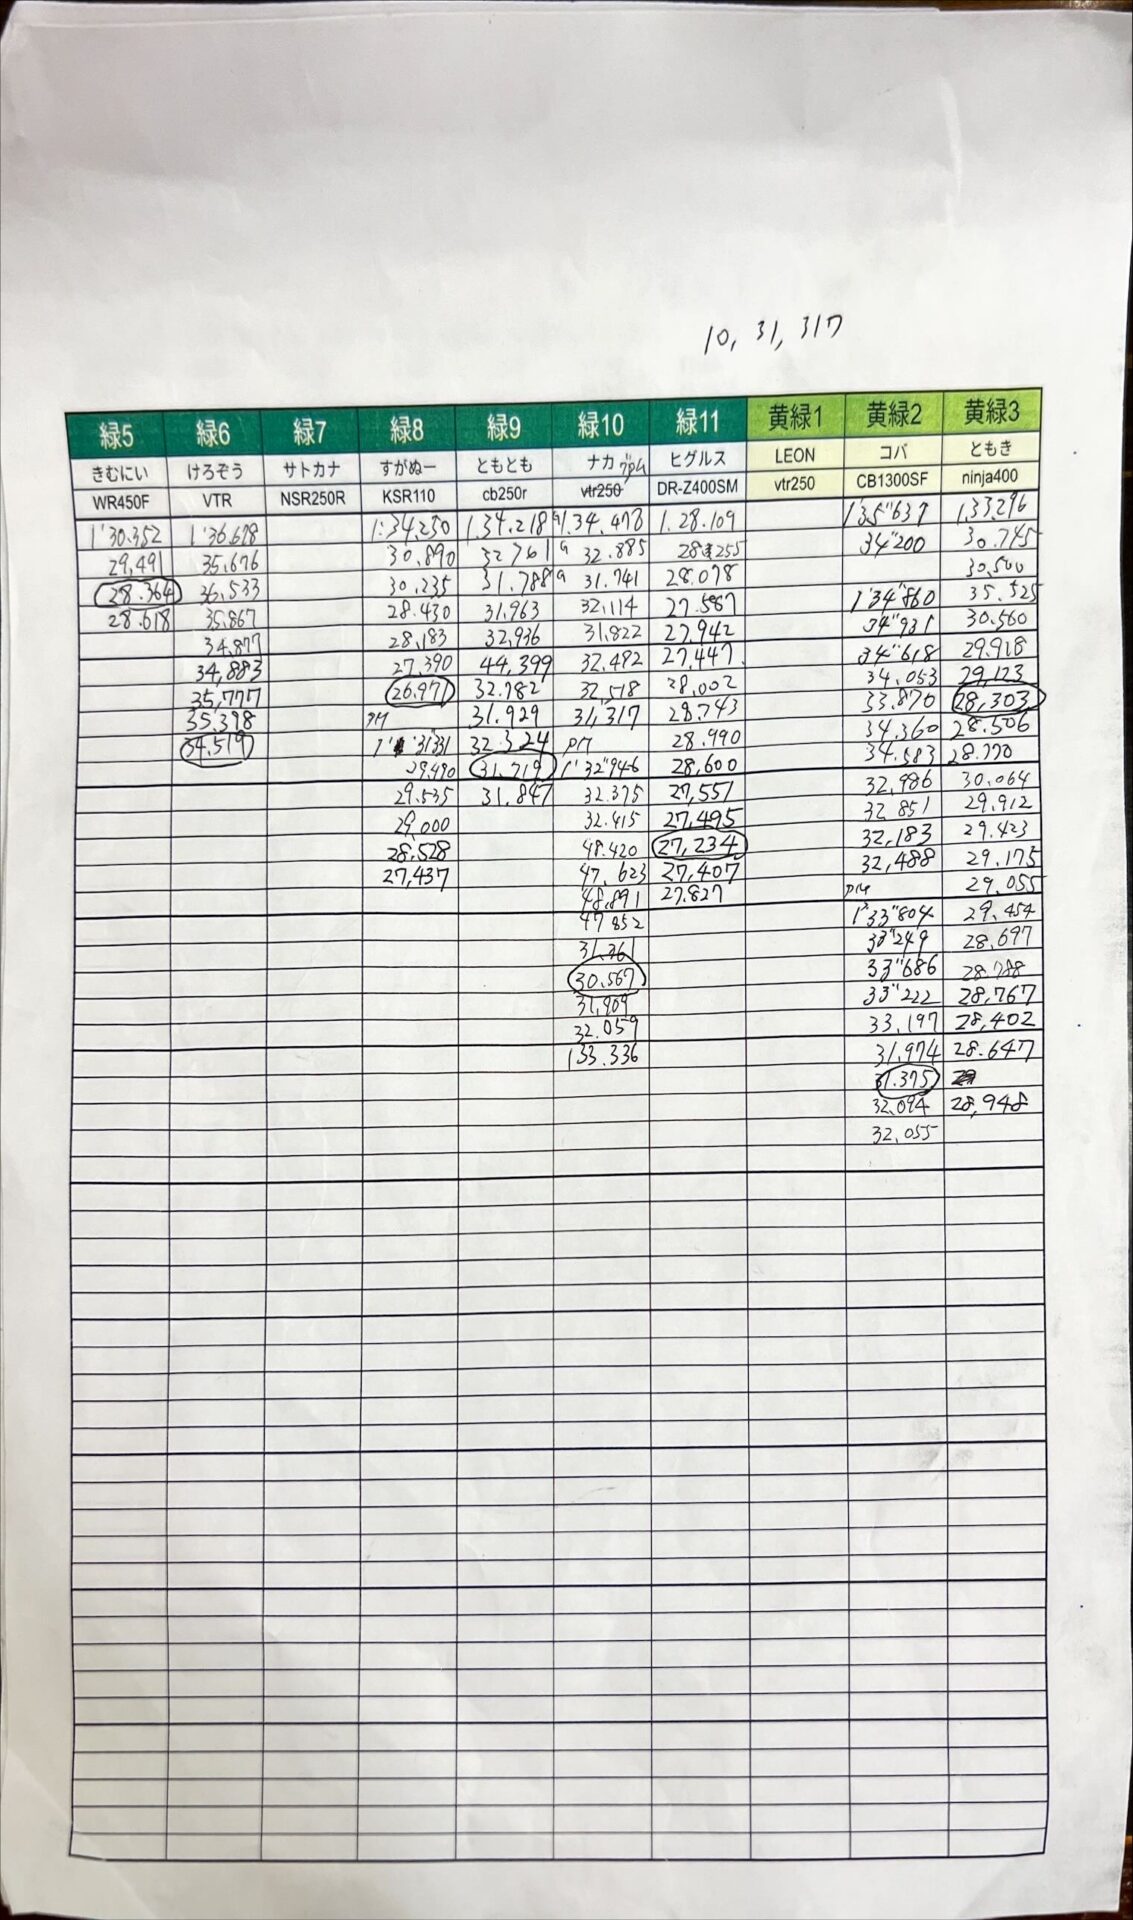 10, 31, 317
緑5 緑6 緑7 緑8 緑9 緑10 緑11 黄緑1 黄緑2 黄緑3
きむにい けろぞう サトカナ すがぬー ともとも ナカ グロム ヒグルス LEON コバ ともき
WR450F VTR NSR250R KSR110 cb250r vtr250 DR-Z400SM vtr250 CB1300SF ninja400
1'30.352 1'36.678 1:34.230 1.34.218 1.34.478 1.28.109 1'35"637 1.33.296
29.491 35.676 30.890 32.761 a 32.885 28.255 34"200 30.745
28.364 36.533 30.235 31.788 a 31.741 28.078 30.500
28.618 35.867 28.430 31.963 32.114 27.587 1'34"860 35.525
34.877 28,183 32,936 31.822 27.942 34"931 30.560
34,883 27,390 44,399 32.482 27.447 34"618 29.918
35,777 26.971 32.782 32,518 28,002 34.053 29,123
35.398 PM 31.929 31,317 28.743 33.870 28,303
34.519 1'31331 32.324 PM 28.990 34.360 28.506
29.490 31.719 1'32"946 28,600 34.583 28.770
29.535 31.847 32.375 27,551 32,986 30.064
29,000 32.415 27,495 32 851 29,912
28,528 48.420 27,234 32,183 29.423
27,437 47,623 27,407 32,488 29.175
48,891 27.827 PM 29.055
47 852 1'33"804 29.454
31.361 33"249 28,697
30.567 33"686 28.788
31,909 33"222 28,767
32.059 33,197 28,402
1.53.336 31,974 28.647
31.375
32.094 28,948
32.055